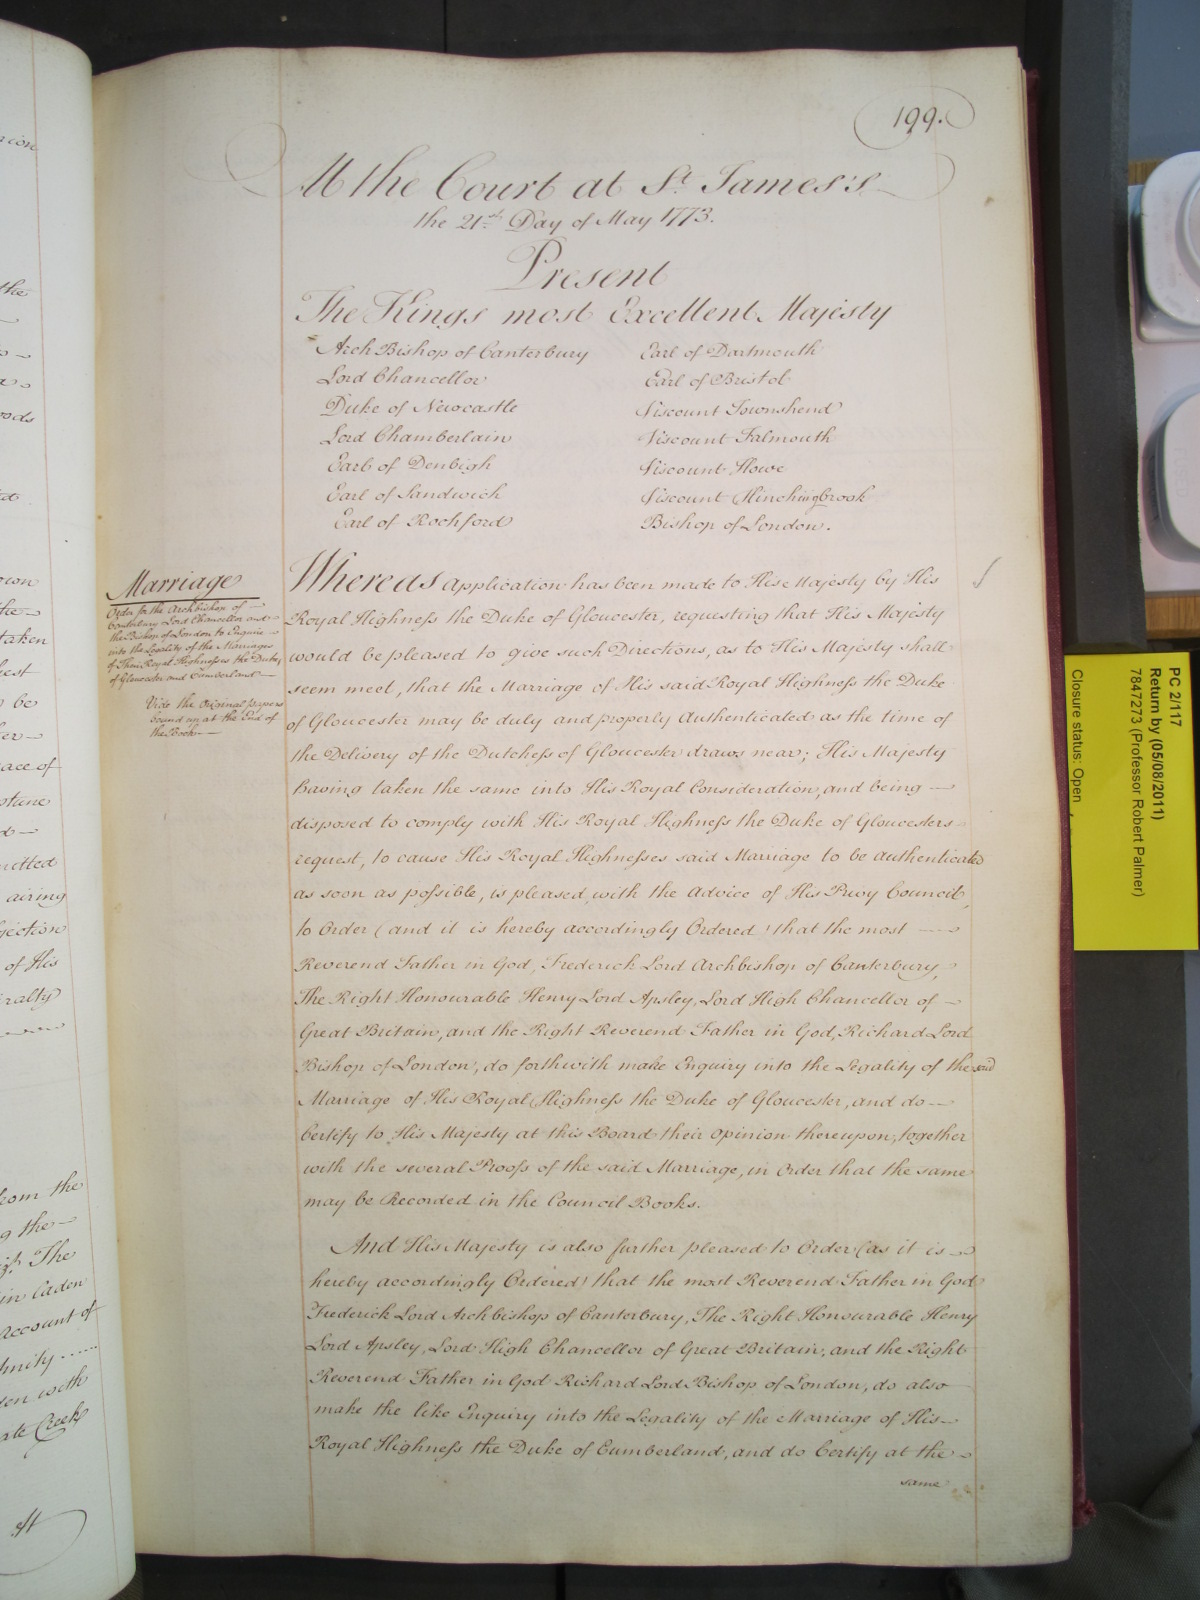 199.
At the Court at St. James's
the 21st Day of May 1773.
Present
The Kings most Excellent Majesty
Arch Bishop of Canterbury
Lord Chancellor
Duke of Newcastle
Lord Chamberlain
Earl of Denbigh
Earl of Sandwich
Earl of Rochford
Earl of Dartmouth
Earl of Bristol
Viscount Townshend
Viscount Falmouth
Viscount Howe
Viscount Hinchingbrook
Bishop of London.
Marriage
Order for the Archbishop of
Canterbury Lord Chancellor and
the Bishop of London to Enquire
into the Legality of the Marriages
of Their Royal Highnesses the Dukes
of Gloucester and Cumberland
Vide the Original papers
bound up at the End of
the Book
Whereas application has been made to His Majesty by His
Royal Highness the Duke of Gloucester, requesting that His Majesty
would be pleased to give such Directions, as to His Majesty shall
seem meet, that the Marriage of His said Royal Highness the Duke
of Gloucester may be duly and properly Authenticated as the time of
the Delivery of the Dutchess of Gloucester draws near; His Majesty
having taken the same into His Royal Consideration, and being
disposed to comply with His Royal Highness the Duke of Gloucesters
request, to cause His Royal Highnesses said Marriage to be Authenticated
as soon as possible, is pleased, with the Advice of His Privy Council,
to Order (and it is hereby accordingly Ordered) that the most
Reverend Father in God, Frederick Lord Archbishop of Canterbury,
The Right Honourable Henry Lord Apsley, Lord High Chancellor of
Great Britain, and the Right Reverend Father in God, Richard Lord
Bishop of London, do forthwith make Enquiry into the Legality of the said
Marriage of His Royal Highness the Duke of Gloucester, and do
Certify to His Majesty at this Board their Opinion thereupon, together
with the several Proofs of the said Marriage, in Order that the same
may be Recorded in the Council Books.
And His Majesty is also further pleased to Order (as it is
hereby accordingly Ordered) that the most Reverend Father in God
Frederick Lord Archbishop of Canterbury, The Right Honourable Henry
Lord Apsley, Lord High Chancellor of Great Britain, and the Right
Reverend Father in God Richard Lord Bishop of London, do also
make the like Enquiry into the Legality of the Marriage of His
Royal Highness the Duke of Cumberland, and do Certify at the
same
PC 2/117
Return by (05/08/2011)
7847273 (Professor Robert Palmer)
Closure status: Open
the
taken
be
ace of
airing
of His
from the
the
The
in Caden
Account of
with
Creek